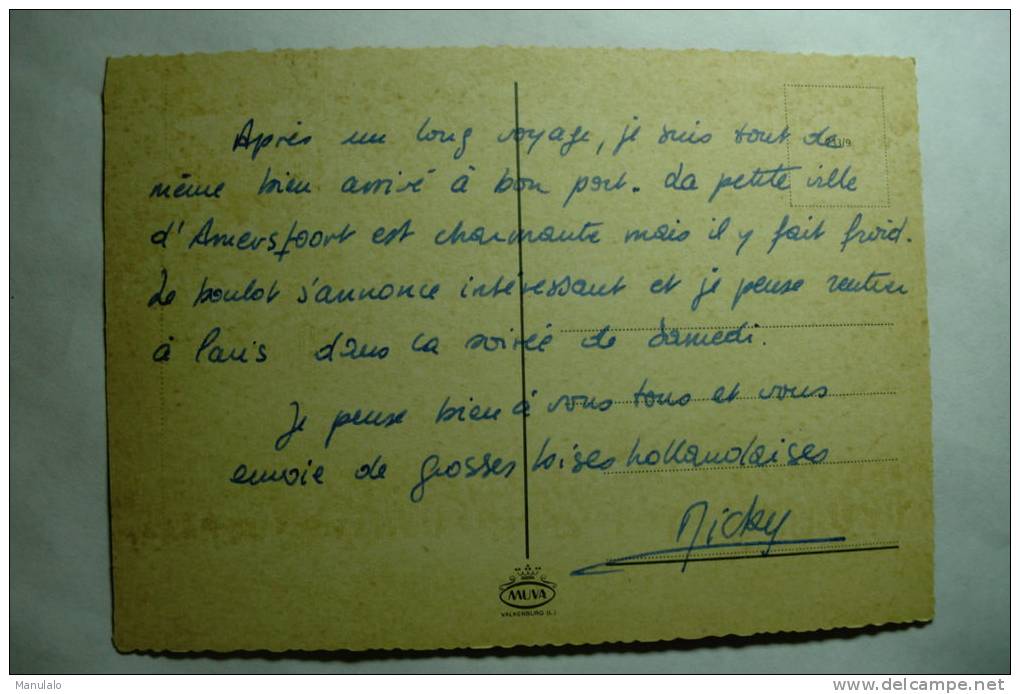 Après un long voyage, je suis tout de
même bien arrivé à bon port. La petite ville
d'Amersfoort est charmante mais il y fait froid.
Le boulot s'annonce intéressant et je pense rentrer
à Paris dans la soirée de Samedi.
Je pense bien à vous tous et vous
envoie de grosses bises hollandaises
Micky
MUVA
VALKENBURG (L.)
Manulalo
www.delcampe.net